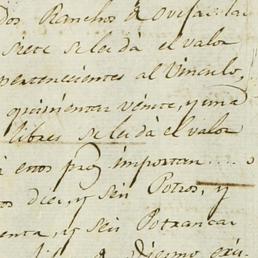 dos Ranchos de Ovejas la
siete se les dà el valor
pertenecientes al Vinculo,
quinientas veinte, y una
libres se les dà el valor
à estos prs importan
os diez, y seis Potros, y
enta, y seis Potrancas
Diezmo